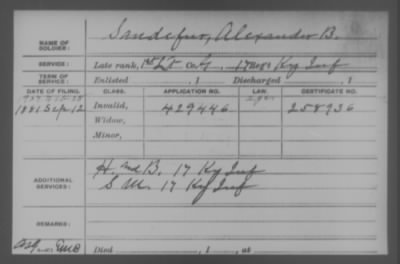 NAME OF SOLDIER: Sandefur, Alexander B.
SERVICE: Late rank, 1st Lt Co. G, 17 Regt Ky Inf
TERM OF SERVICE: Enlisted , 1 Discharged , 1
DATE OF FILING. CLASS. APPLICATION NO. LAW. CERTIFICATE NO.
1881 Sep 12 Invalid, 429446 258936
Widow,
Minor,
ADDITIONAL SERVICES: H. and B. 17 Ky Inf
S M. 17 Ky Inf
REMARKS:
Died , 1 , at